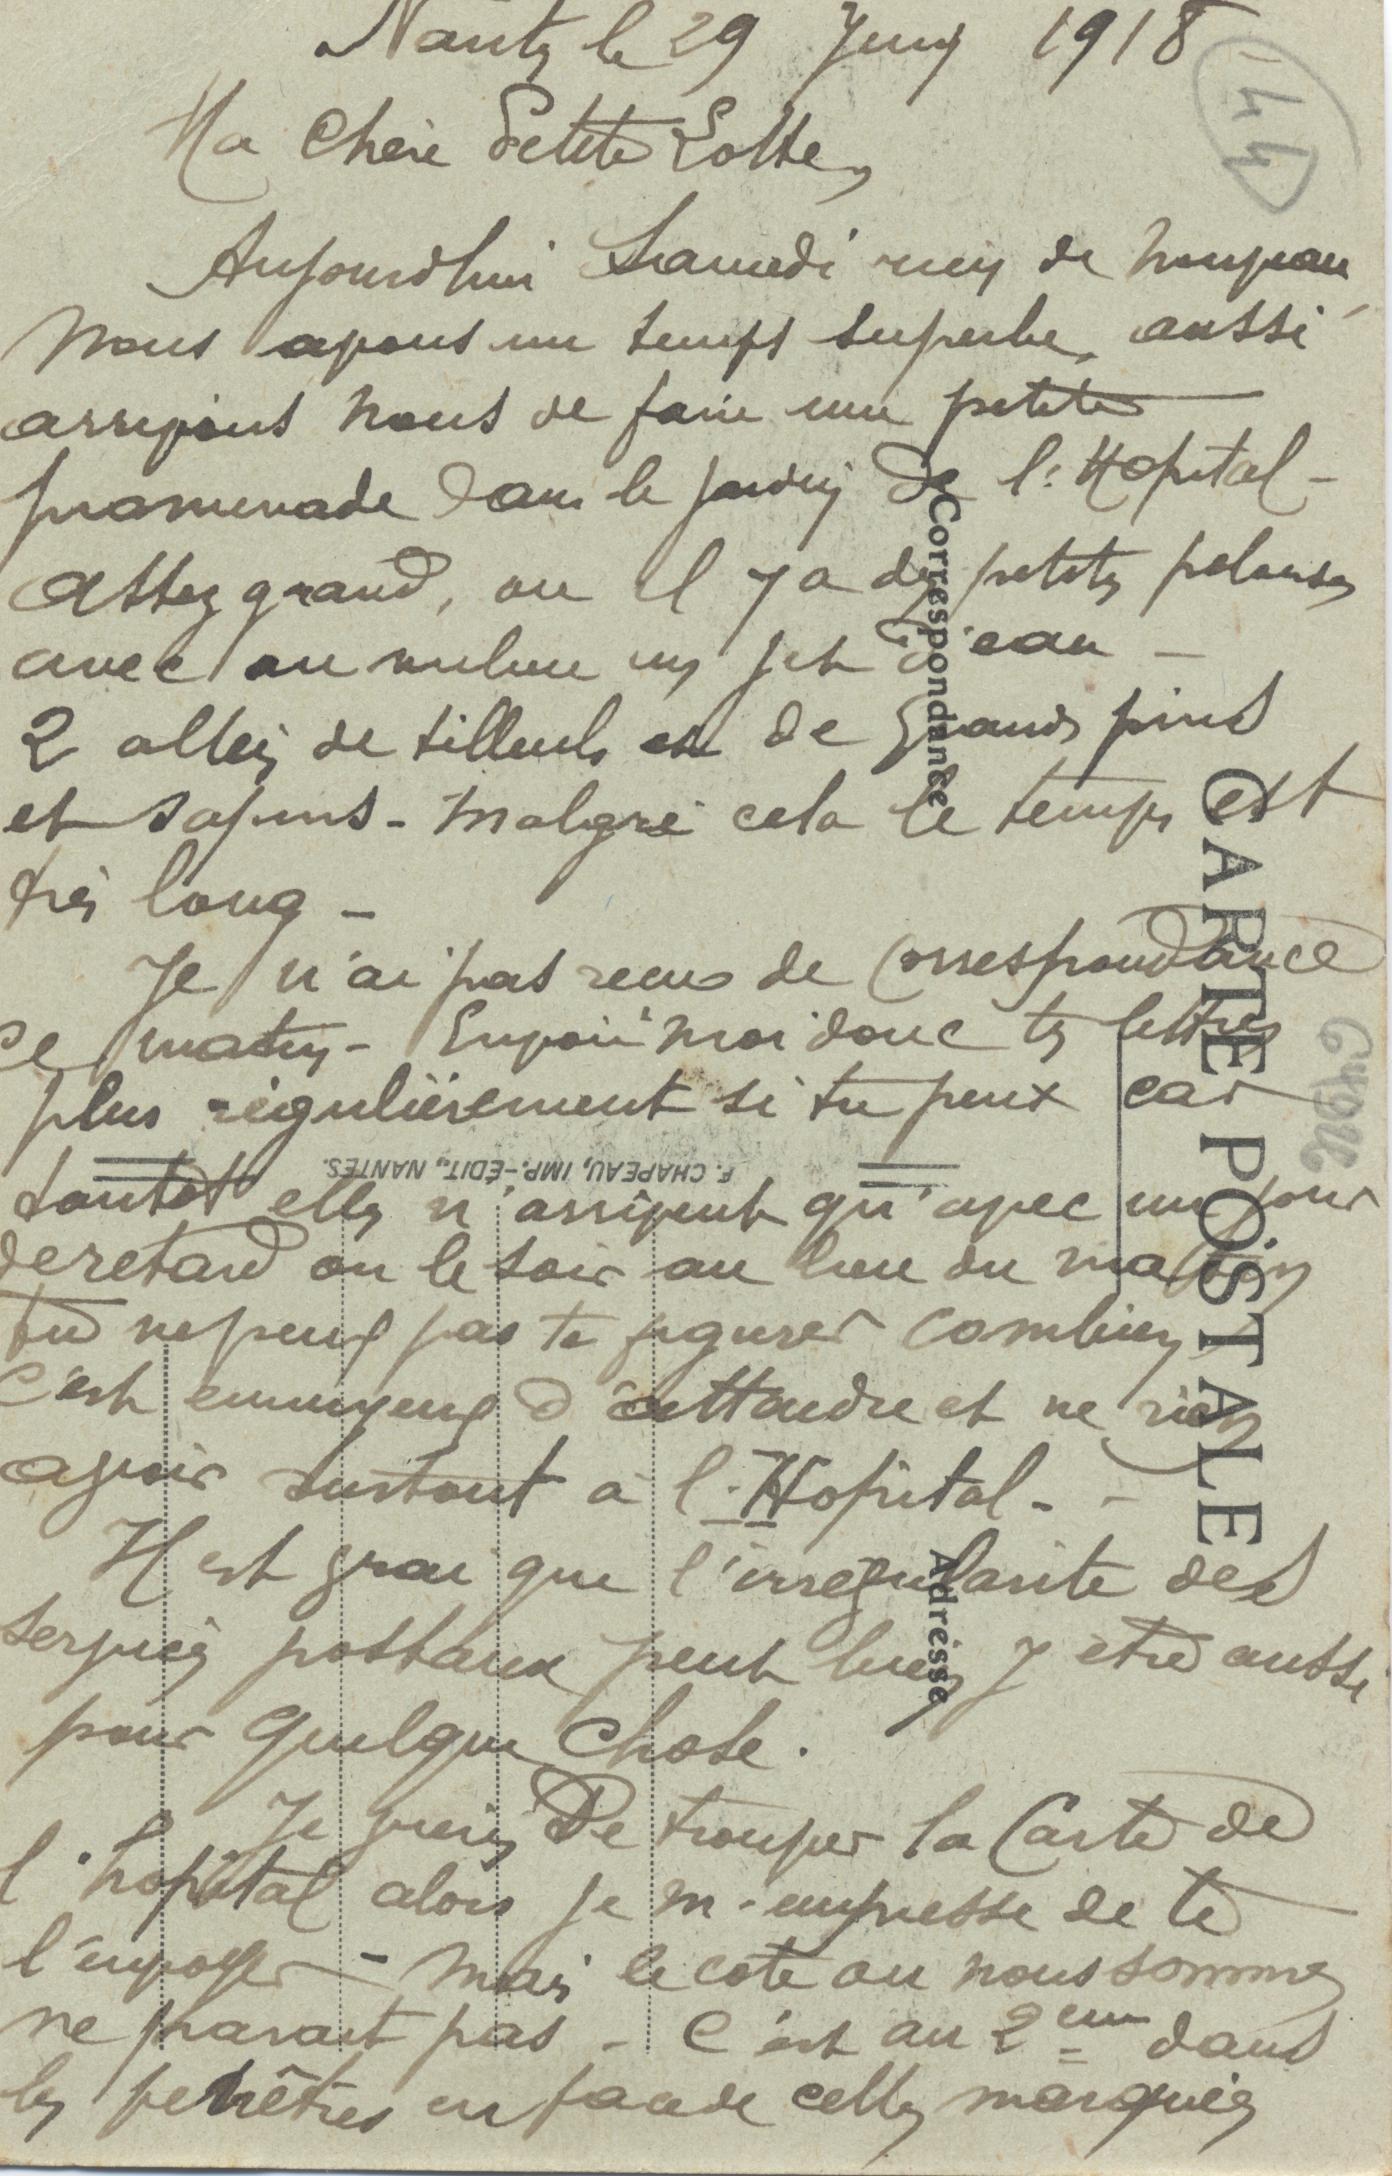 Nantes le 29 Juin 1918
44
Ma Chère Petite Lotte,
Aujourd'hui Samedi rien de nouveau
Nous avons un temps superbe, aussi
arrivons nous de faire une petite
promenade dans le jardin de l'Hopital -
assez grand, ou il y a des petites pelouses
avec au milieu un jet d'eau -
2 allées de tilleuls et de grands pins
et sapins - Malgré cela le temps est
très long -
Je n'ai pas recu de Correspondance
ce matin - Envoie moi donc tes lettres
plus régulièrement si tu peux car
tantot elles n'arrivent qu'avec un jour
de retard ou le soir au lieu du matin
tu ne peux pas te figurer combien
c'est ennuyeux d'attendre et ne rien
avoir surtout à l'Hopital - -
Il est vrai que l'irregularite des
services postaux peut bien y être aussi
pour quelque chose.
Je viens de trouver la Carte de
l'hopital alors je m'empresse de te
l'envoyer - Mais le coté ou nous sommes
ne parait pas - C'est au 2eme dans
les fenêtres en facade celles marquées
CARTE POSTALE
Correspondance
Adresse
F. CHAPEAU, IMP.-ÉDIT., NANTES.